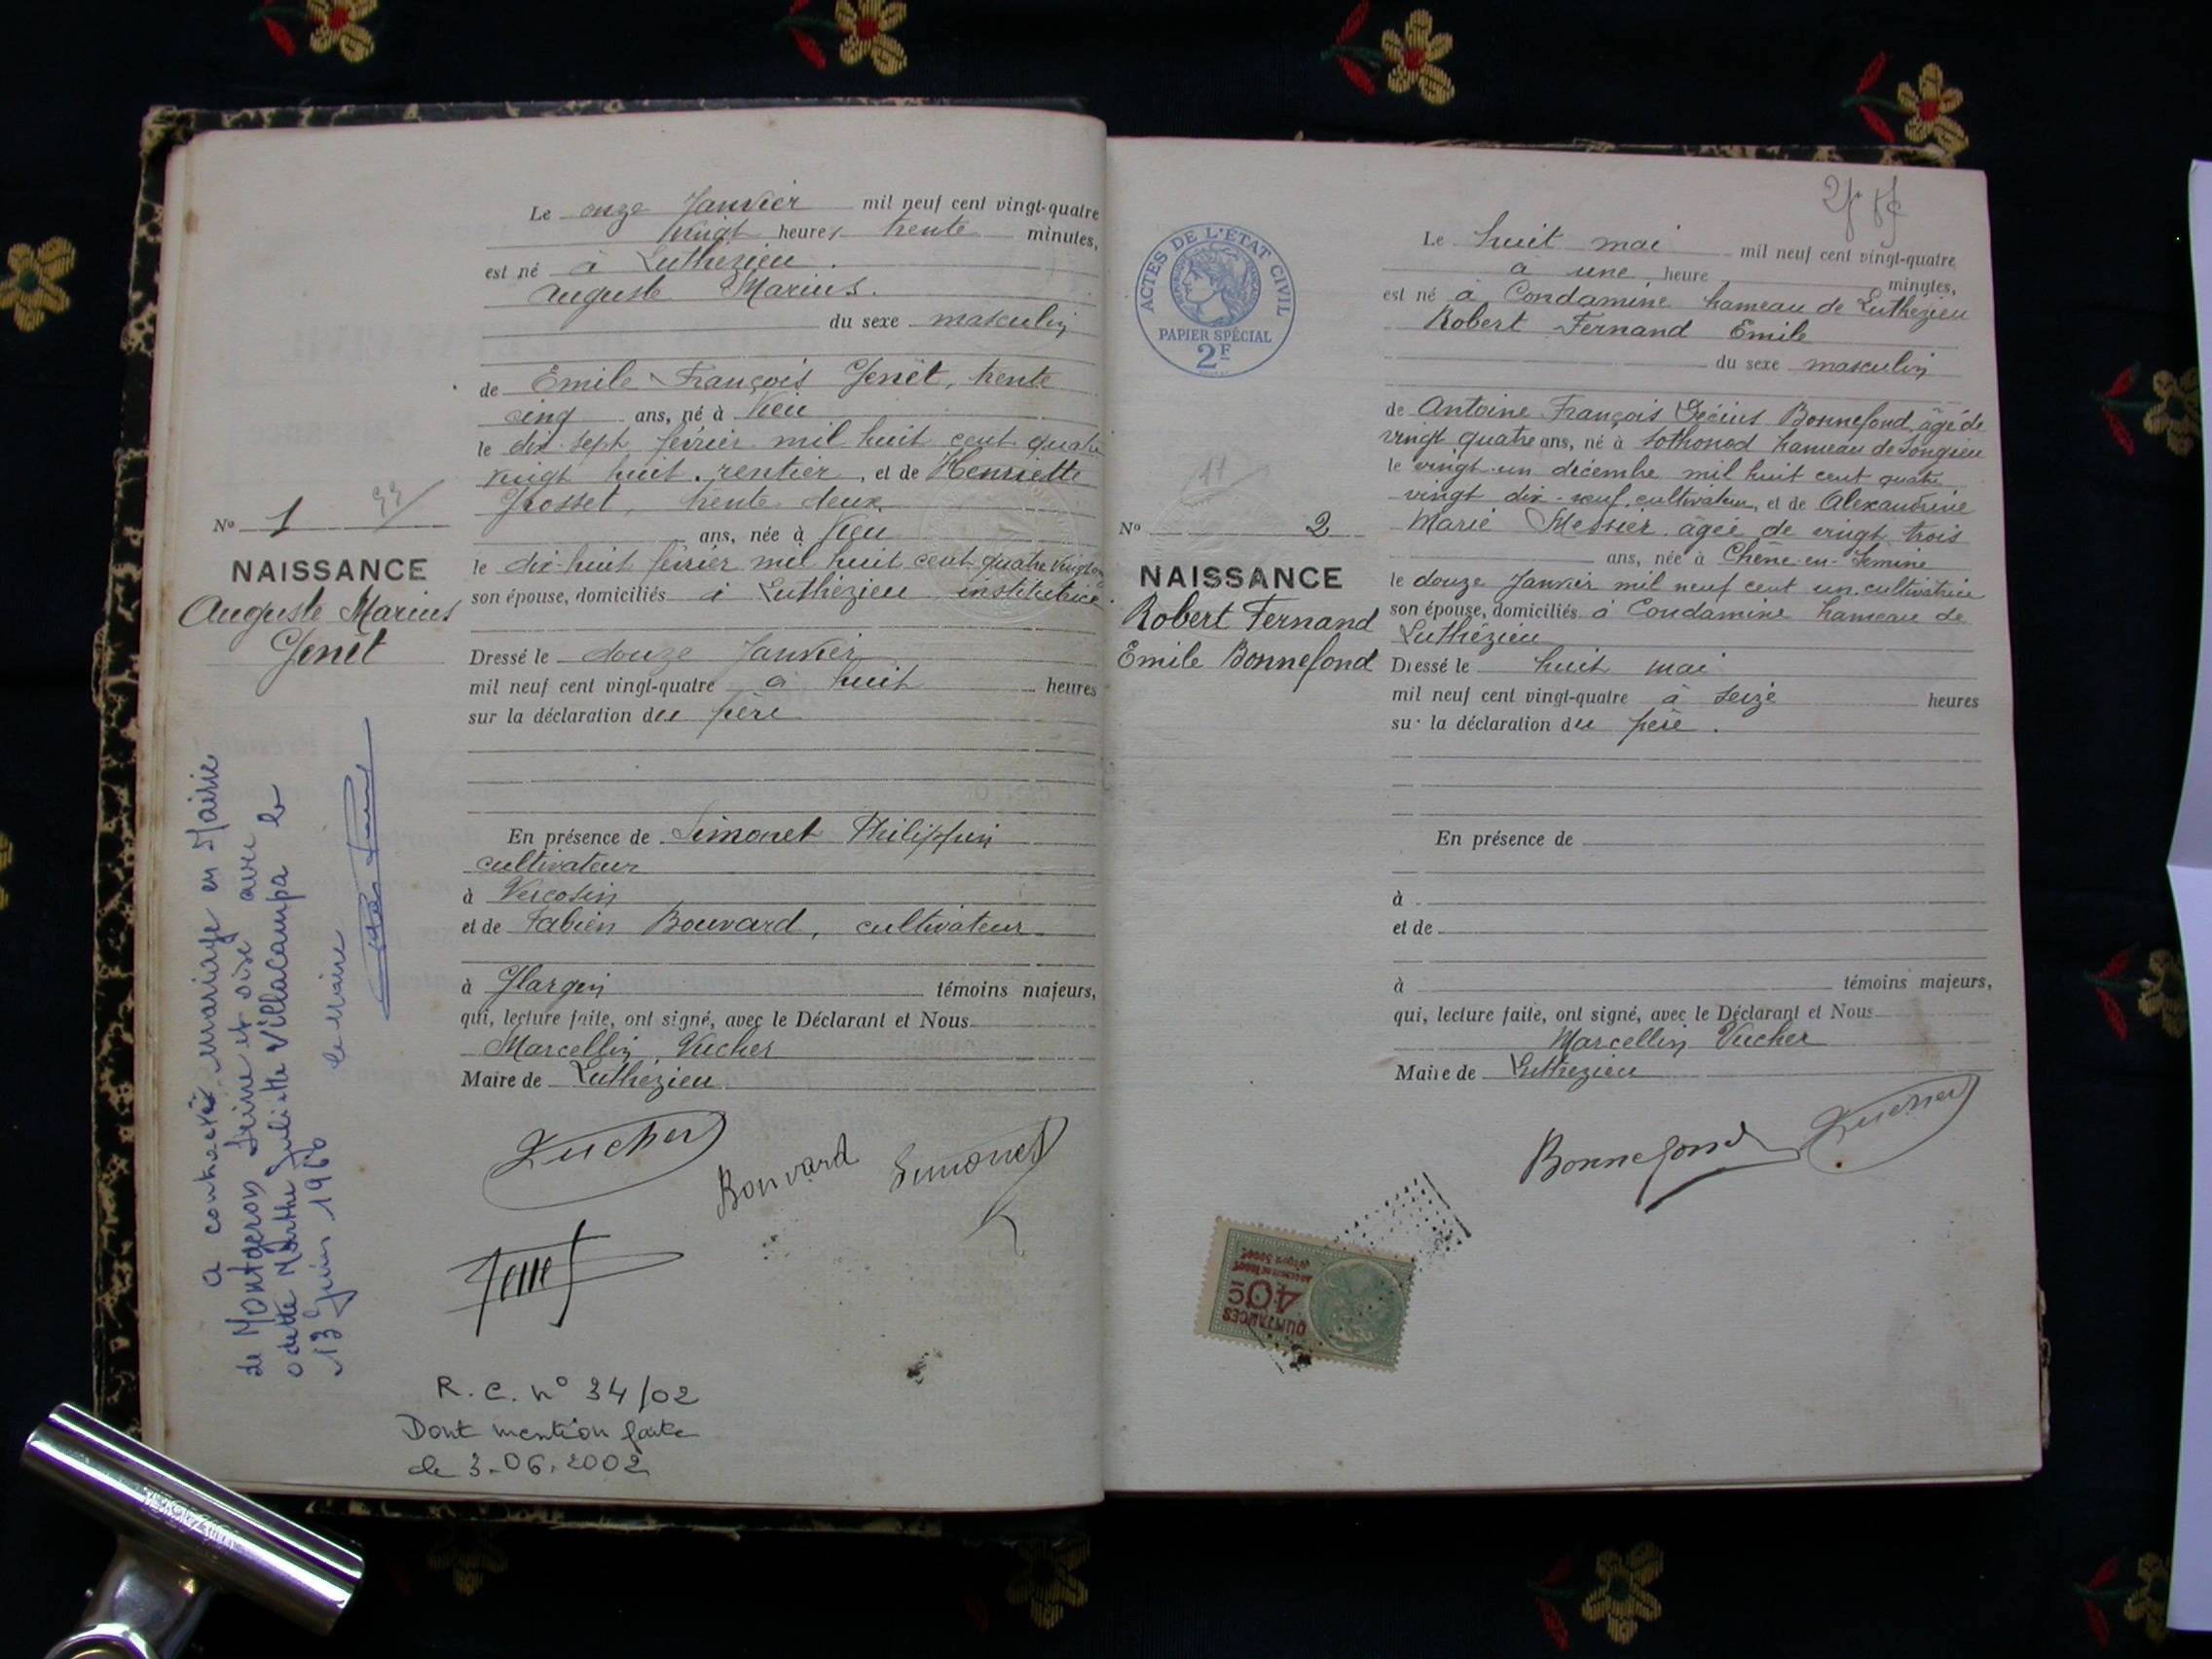 Le onze Janvier mil neuf cent vingt-quatre
vingt heures trente minutes,
est né à Luthézieu.
Auguste Marius.
du sexe masculin
de Emile François Genet, trente
cinq ans, né à Vieu
le dix sept février mil huit cent quatre
vingt huit. rentier, et de Henriette
Grosset, trente deux,
ans, née à Vieu
le dix-huit février mil huit cent quatre vingt
son épouse, domiciliés à Luthézieu institutrice.
Dressé le douze Janvier
mil neuf cent vingt-quatre à huit heures
sur la déclaration du père
En présence de Simonet Philippin
cultivateur
à Vercosin
et de Fabien Bouvard, cultivateur
à témoins majeurs,
qui, lecture faite, ont signé, avec le Déclarant et Nous
Marcellin Vucher
Maire de Luthézieu
Vucher
Bouvard
Simonet
Genet
R.C. n° 34/02
Dont mention faite
le 3.06.2002
N° 1
NAISSANCE
Auguste Marius
Genet
a contracté mariage en Mairie
de Montgeron Seine et Oise avec
Odette Marthe Juliette Villacampa le
13 Juin 1966
le Maire
2F
Le huit mai mil neuf cent vingt-quatre
à une heure minutes,
est né à Condamine hameau de Luthézieu
Robert Fernand Emile
du sexe masculin
de Antoine François Bonnefond, âgé de
vingt quatre ans, né à Sothonod hameau de Songieu
le vingt-un décembre mil huit cent quatre
vingt dix-neuf, cultivateur, et de Alexandrine
Marie Messier âgée de vingt trois
ans, née à Chêne-en-Semine
le douze Janvier mil neuf cent un cultivatrice
son épouse, domiciliés à Condamine hameau de
Luthézieu
Dressé le huit mai
mil neuf cent vingt-quatre à seize heures
sur la déclaration du père.
En présence de
à
et de
à témoins majeurs,
qui, lecture faite, ont signé, avec le Déclarant et Nous
Marcellin Vucher
Maire de Luthézieu
Bonnefond
Vucher
ACTES DE L'ÉTAT CIVIL
PAPIER SPÉCIAL
2F
N° 2
NAISSANCE
Robert Fernand
Emile Bonnefond
QUITTANCES
40c